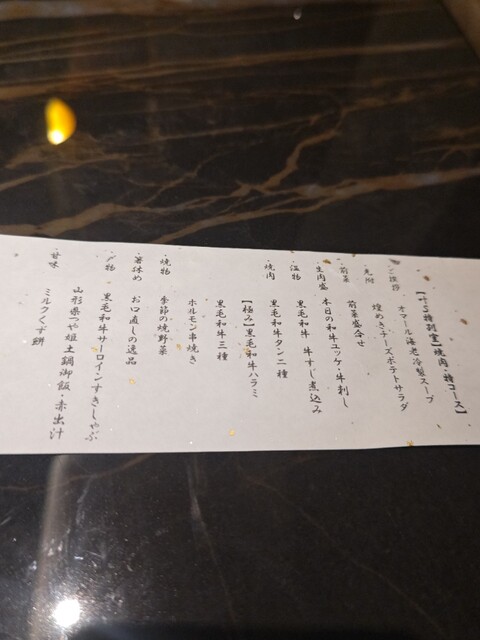 焼肉・極コース】
ご挨拶 オマール海老冷製スープ
先附 煌めきチーズポテトサラダ
前菜 前菜盛合せ
生肉盛 本日の和牛ユッケ・牛刺し
温物 黒毛和牛 牛すじ煮込み
焼肉 黒毛和牛タン二種
【極み】黒毛和牛ハラミ
黒毛和牛三種
ホルモン串焼き
焼物 季節の焼野菜
箸休め お口直しの逸品
〆物 黒毛和牛サーロインすきしゃぶ
山形県つや姫土鍋御飯・赤出汁
甘味 ミルクくず餅